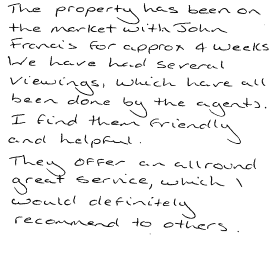 The property has been on
the market with John
Francis for approx 4 weeks
We have had several
viewings, which have all
been done by the agents.
I find them friendly
and helpful.
They offer an allround
great service, which I
would definitely
recommend to others.